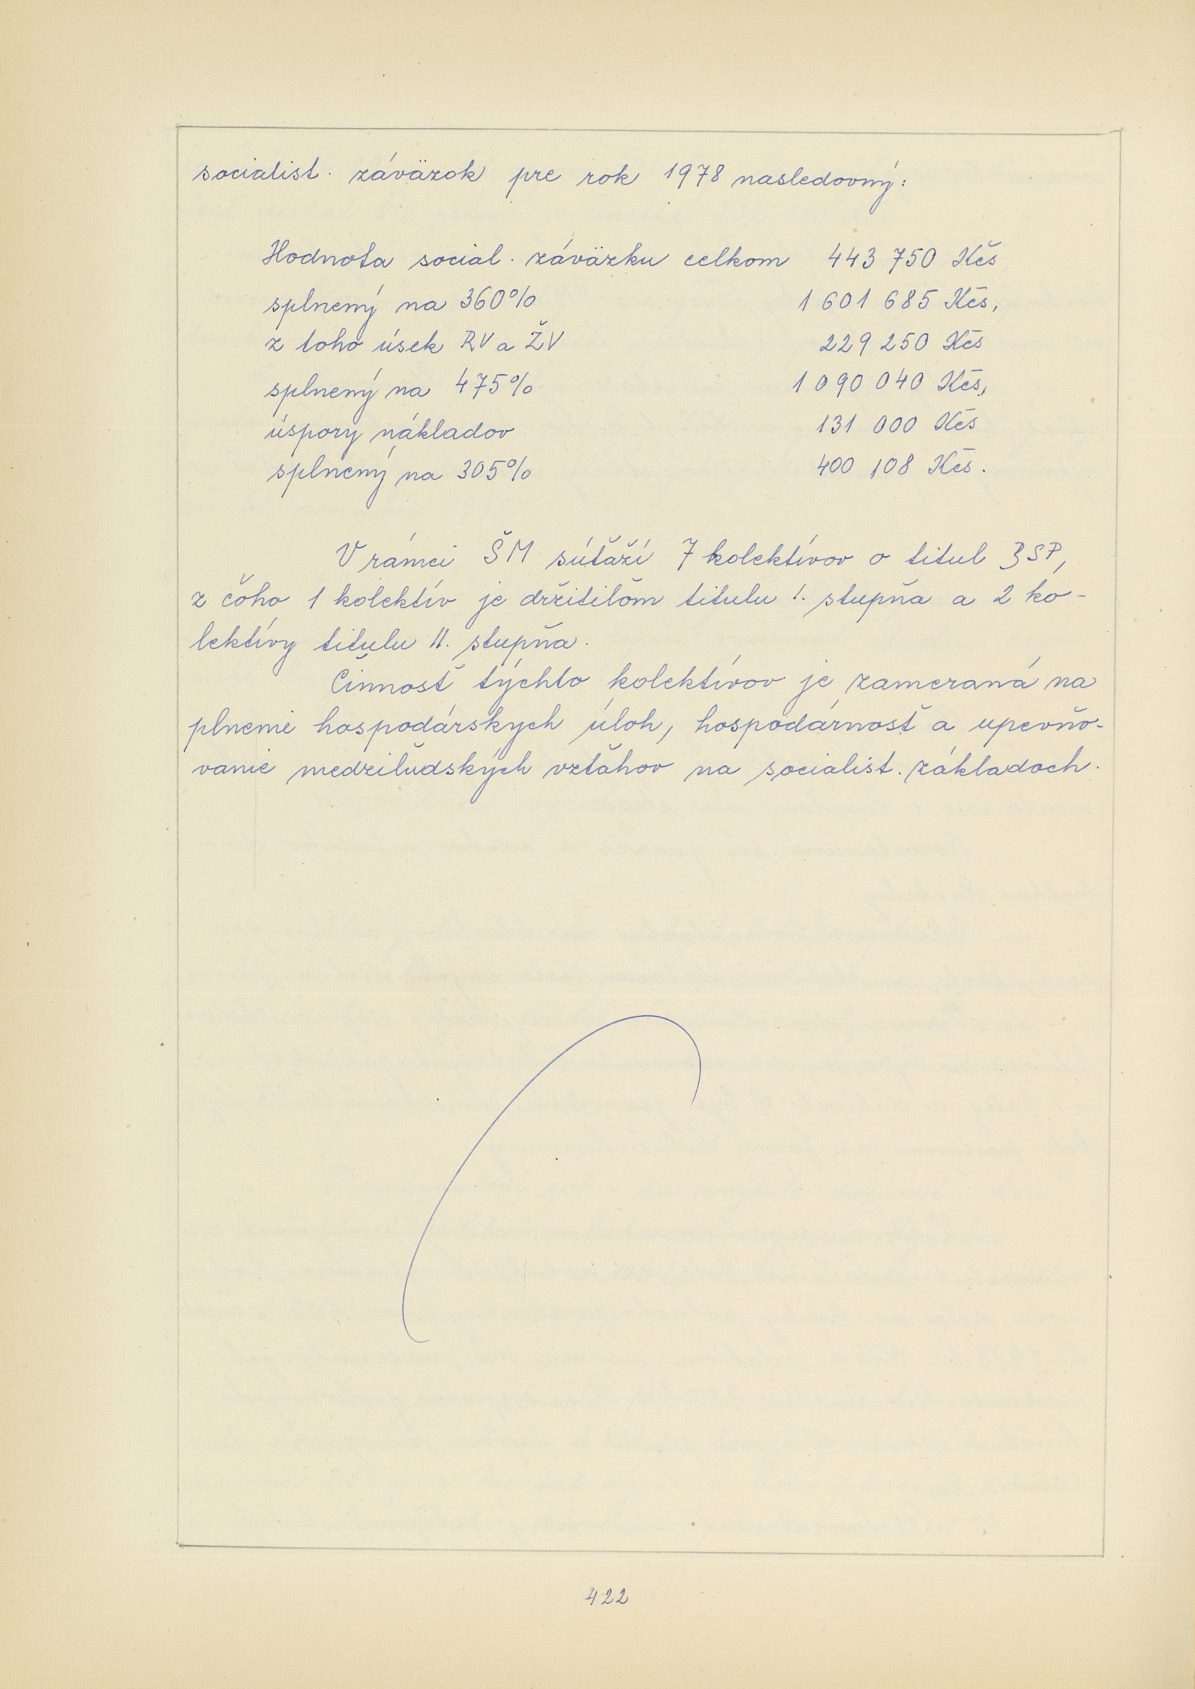 socialist. záväzok pre rok 1978 nasledovný:
Hodnota social. záväzku celkom 443 750 Kčs
splnený na 360% 1 601 685 Kčs,
z toho úsek RV a ŽV 229 250 Kčs
splnený na 475% 1 090 040 Kčs,
úspory nákladov 131 000 Kčs
splnený na 305% 400 108 Kčs.
V rámci ŠM súťaží 7 kolektívov o titul BSP,
z čoho 1 kolektív je držitilom titulu I. stupňa a 2 ko-
lektívy titulu II. stupňa.
Činnosť týchto kolektívov je zameraná na
plnenie hospodárskych úloh, hospodárnosť a upevňo-
vanie medziľudských vzťahov na socialist. základoch.
422